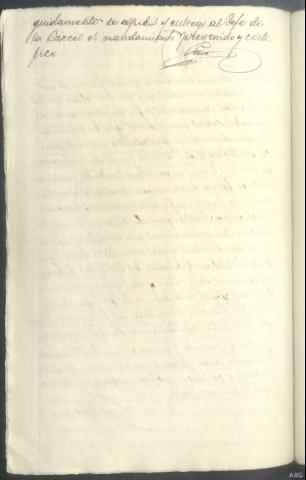 guidamente se expidió y entregó al Jefe de
la Cárcel el mandamiento prevenido y certi-
fico
ARG